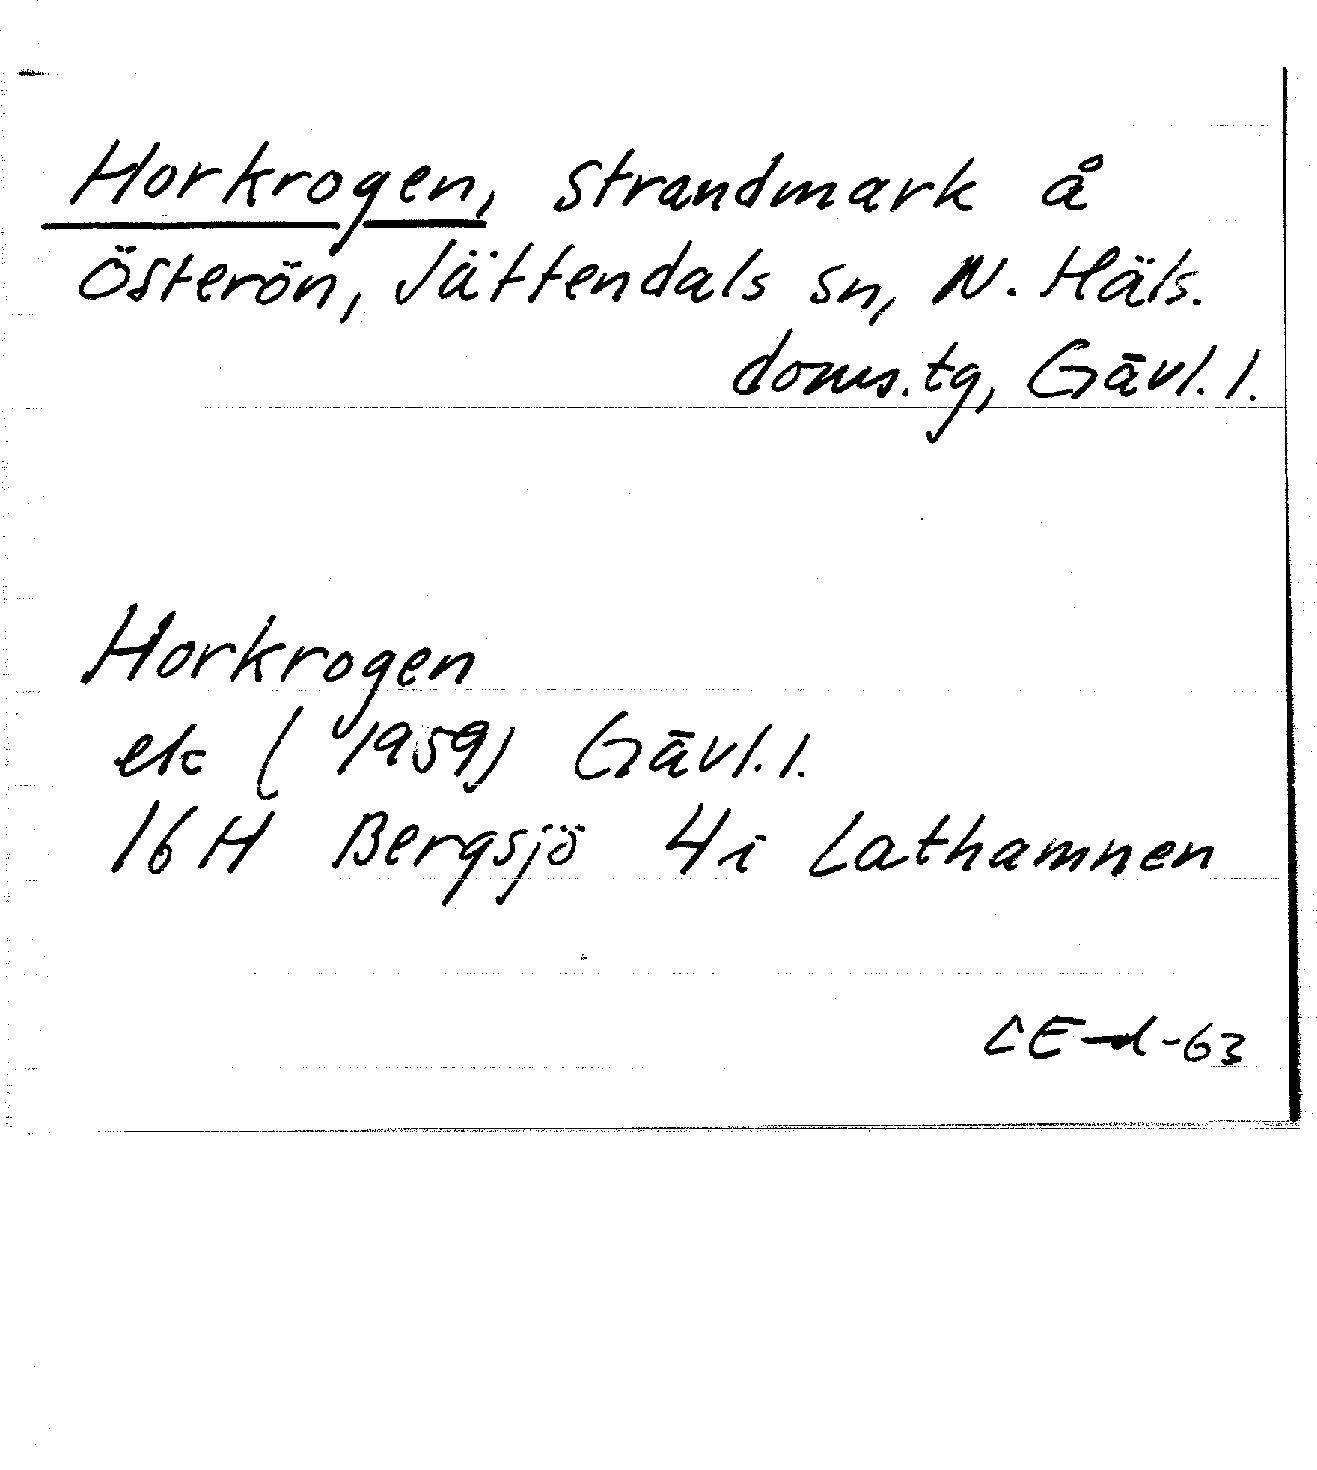 Horkrogen, Strandmark å
Österön, Jättendals sn, N. Häls.
doms.tg, Gävl. l.
Horkrogen
ek (1959) Gävl. l.
16H Bergsjö 4i Lathamnen
CE-d-63